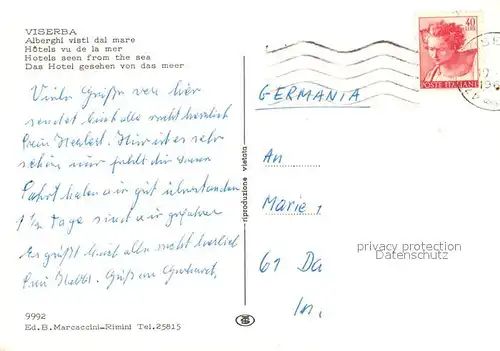 VISERBA
Alberghi visti dal mare
Hôtels vu de la mer
Hotels seen from the sea
Das Hotel gesehen von das meer
Viele Grüße von hier
sendet Euch alle recht herzlich
Herbert. Hier ist es sehr
schön, nur fehlt die
Fahrt haben wir gut überstanden
1 1/2 Tage sind wir gefahren
Es grüßt Euch alle recht herzlich
9992
Ed. B. Marcaccini-Rimini Tel. 25815
riproduzione vietata
40
POSTE ITALIANE
GERMANIA
An
Marie
61 Da
In.
privacy protection
Datenschutz